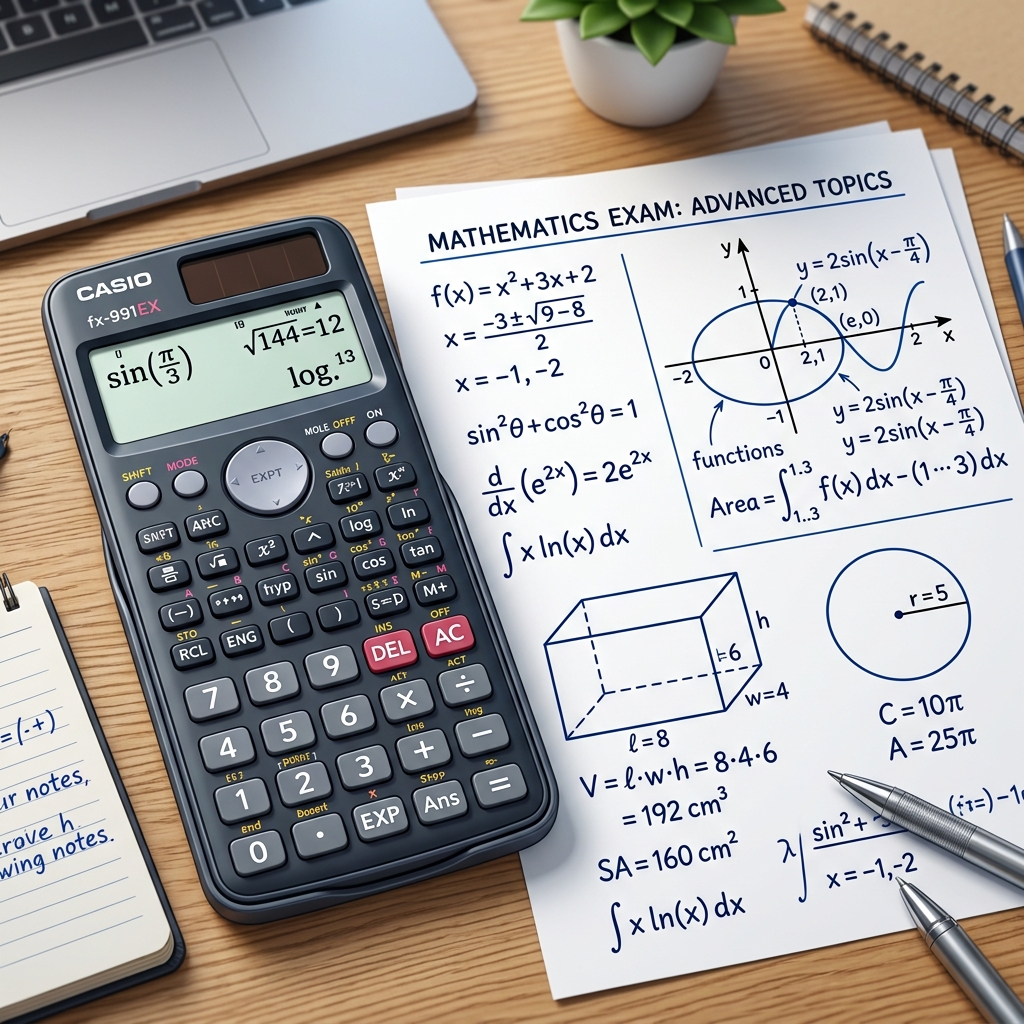 CASIO
fx-991EX
sin(π/3)
√144=12
log.¹³
SHIFT
MODE
MOLE
OFFF
ON
EXPT
x²
^
log
ln
hyp
sin
cos
tan
(−)
(
)
S=D
M+
STO
RCL
ENG
INS
DEL
OFF
AC
7
8
9
×
÷
ACT
4
5
6
+
−
1
2
3
Ans
=
0
·
EXP
MATHEMATICS EXAM: ADVANCED TOPICS
f(x) = x² + 3x + 2
x = (−3 ± √9 − 8)/2
x = −1, −2
sin²θ + cos²θ = 1
d/dx (e²ˣ) = 2e²ˣ
∫ x ln(x) dx
y
y = 2sin(x − π/4)
1
(2,1)
(e,0)
−2
0
2,1
2
x
−1
functions
y = 2sin(x − π/4)
y = 2sin(x − π/4)
Area = ∫ 1..3 1.3 f(x) dx − (1···3) dx
h
w=4
ℓ=8
V = ℓ·w·h = 8·4·6
= 192 cm³
SA = 160 cm²
∫ x ln(x) dx
r = 5
C = 10π
A = 25π
sin² +
x = −1, −2
=(.+)
ur notes,
rove h
wing notes.